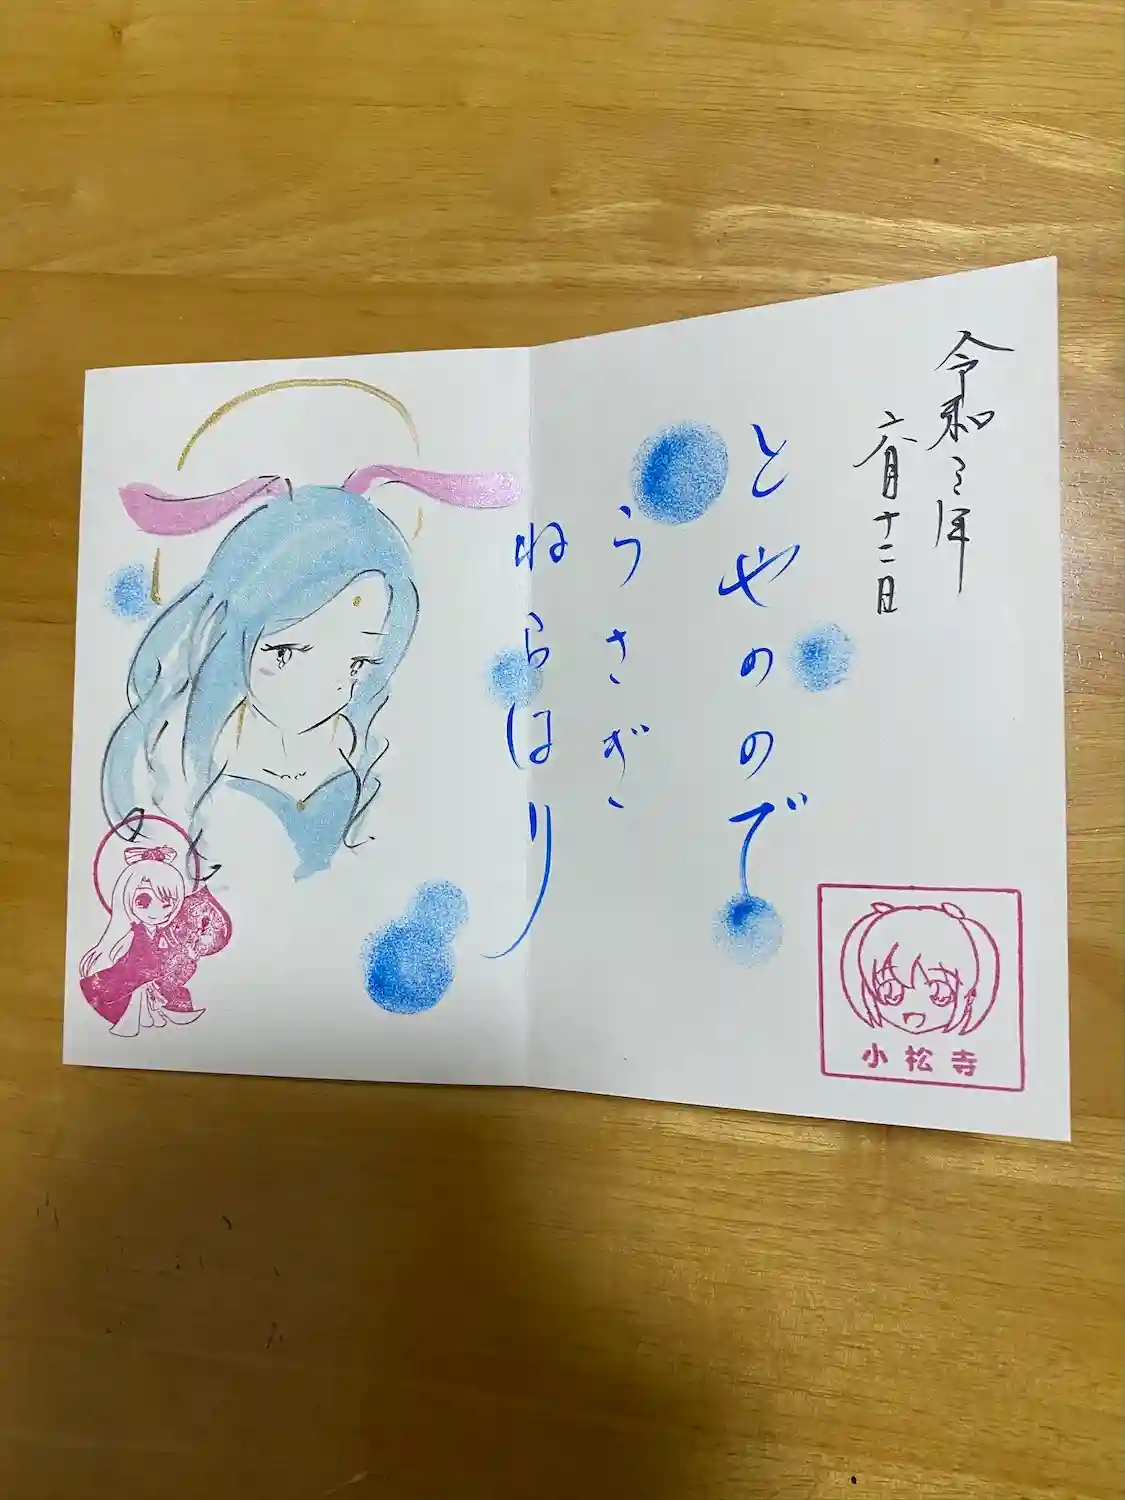 令和三年
六月十二日
とやのので
うさぎ
ねらはり
小松寺